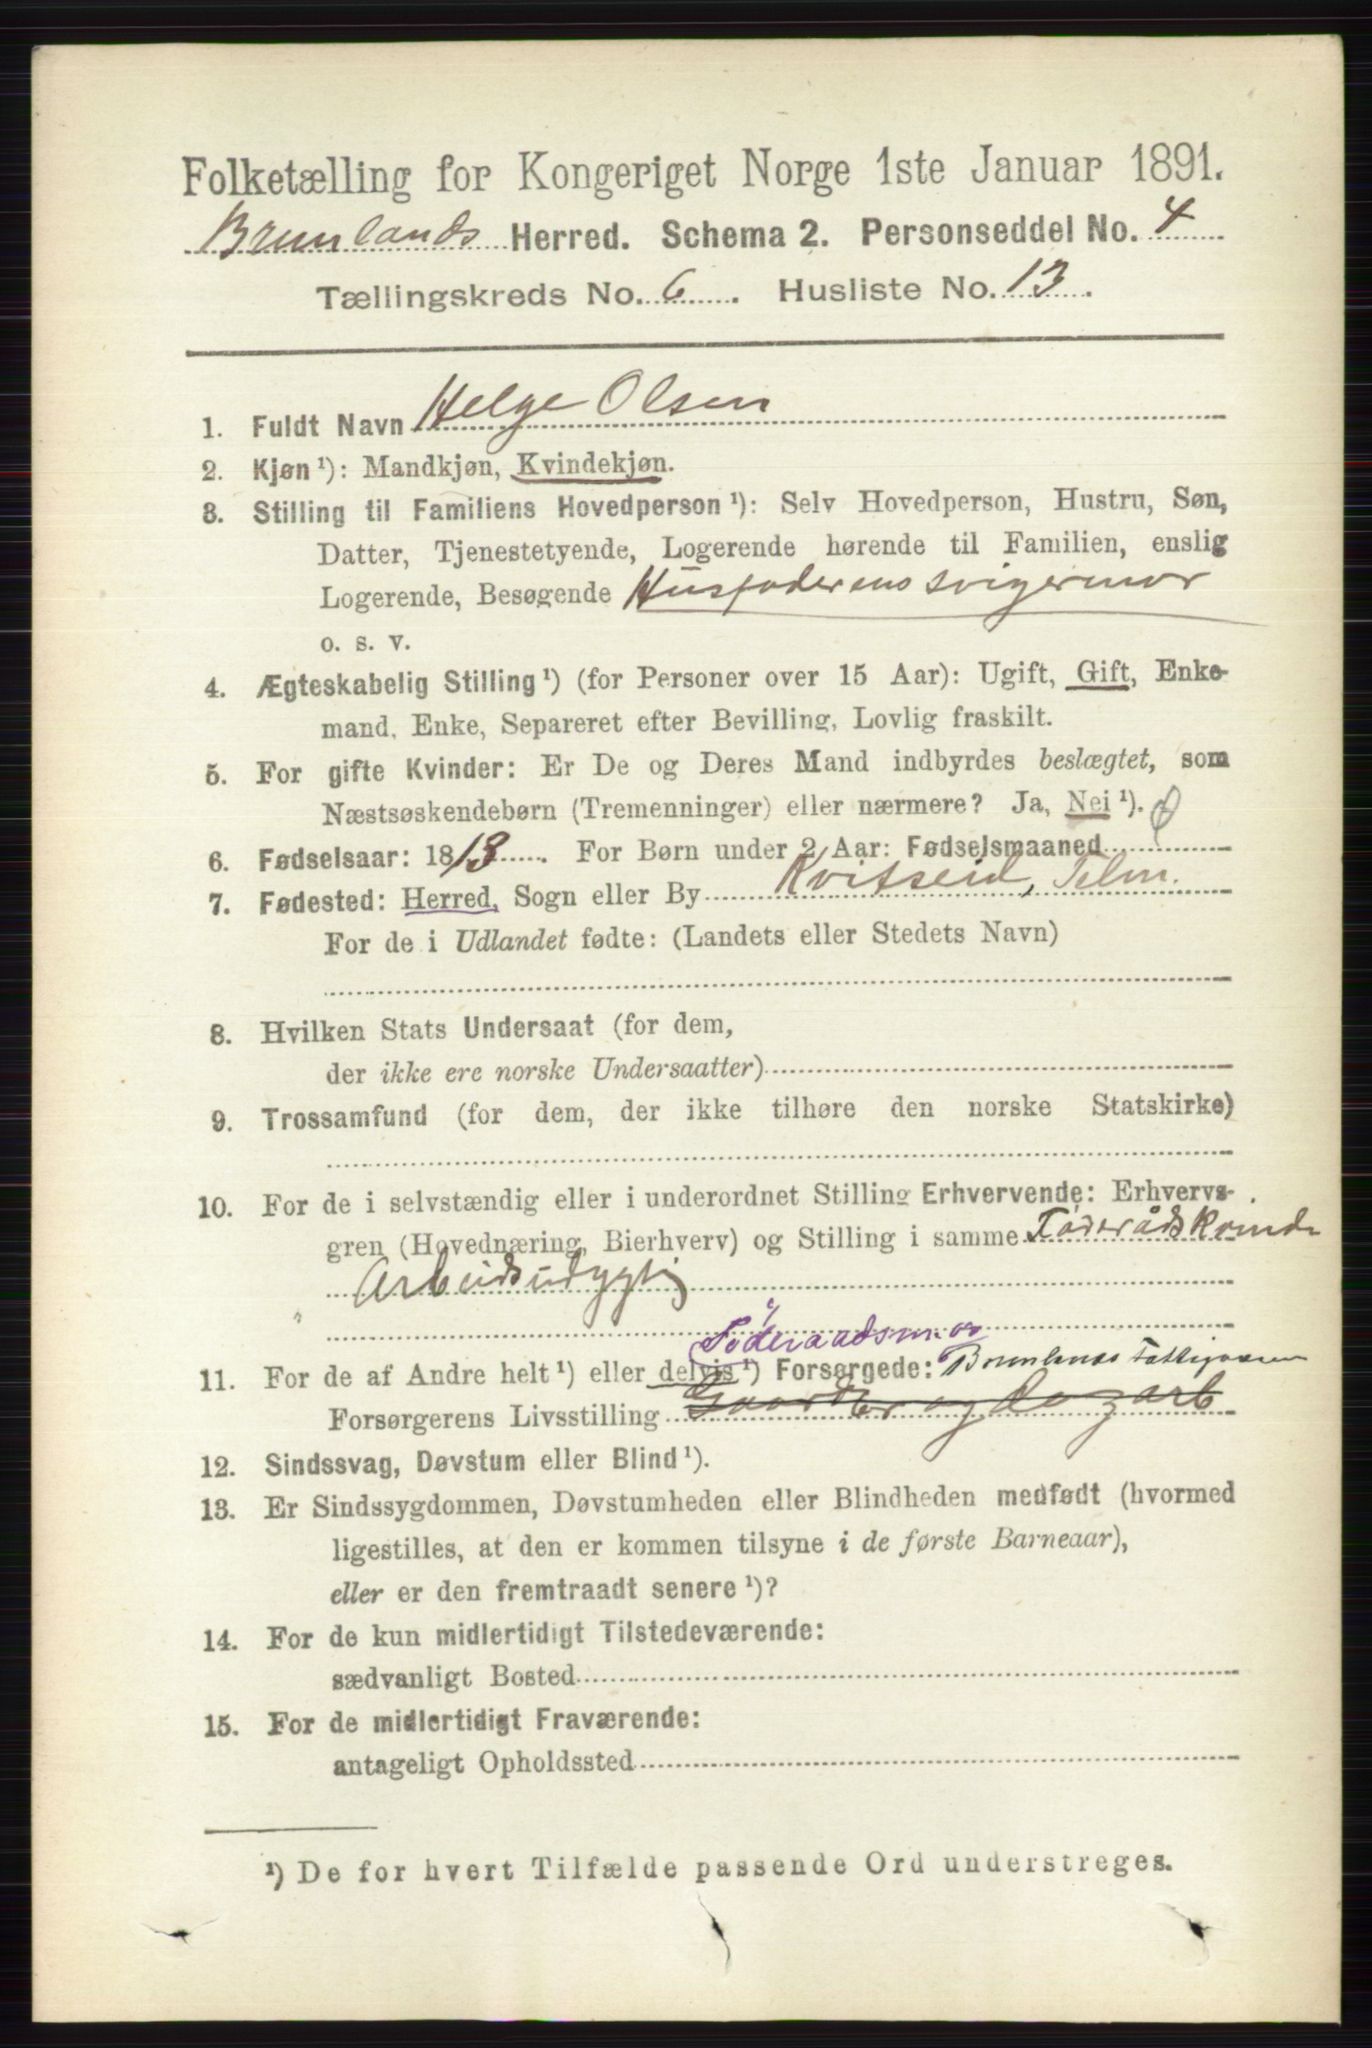 Folketælling for Kongeriget Norge 1ste Januar 1891.
Brunlands Herred. Schema 2. Personseddel No. 4
Tællingskreds No. 6. Husliste No. 13.
1. Fuldt Navn Helge Olsen
2. Kjøn ¹): Mandkjøn, Kvindekjøn.
3. Stilling til Familiens Hovedperson ¹): Selv Hovedperson, Hustru, Søn,
Datter, Tjenestetyende, Logerende hørende til Familien, enslig
Logerende, Besøgende Husfaderens svigermor
o. s. v.
4. Ægteskabelig Stilling ¹) (for Personer over 15 Aar): Ugift, Gift, Enke-
mand, Enke, Separeret efter Bevilling, Lovlig fraskilt.
5. For gifte Kvinder: Er De og Deres Mand indbyrdes beslægtet, som
Næstsøskendebørn (Tremenninger) eller nærmere? Ja, Nei ¹).
6. Fødselsaar: 1813. For Børn under 2 Aar: Fødselsmaaned
7. Fødested: Herred, Sogn eller By Kvitseid, Telm.
For de i Udlandet fødte: (Landets eller Stedets Navn)
8. Hvilken Stats Undersaat (for dem,
der ikke ere norske Undersaatter)
9. Trossamfund (for dem, der ikke tilhøre den norske Statskirke)
10. For de i selvstændig eller i underordnet Stilling Erhvervende: Erhvervs-
gren (Hovednæring, Bierhverv) og Stilling i samme Føderåds Kvinde
Arbeidsudygtig
Føderaadsm. og
11. For de af Andre helt ¹) eller delvis ¹) Forsørgede: Brunlanes
Forsørgerens Livsstilling Gaardbr og
12. Sindssvag, Døvstum eller Blind ¹).
13. Er Sindssygdommen, Døvstumheden eller Blindheden medfødt (hvormed
ligestilles, at den er kommen tilsyne i de første Barneaar),
eller er den fremtraadt senere ¹)?
14. For de kun midlertidigt Tilstedeværende:
sædvanligt Bosted
15. For de midlertidigt Fraværende:
antageligt Opholdssted
¹) De for hvert Tilfælde passende Ord understreges.